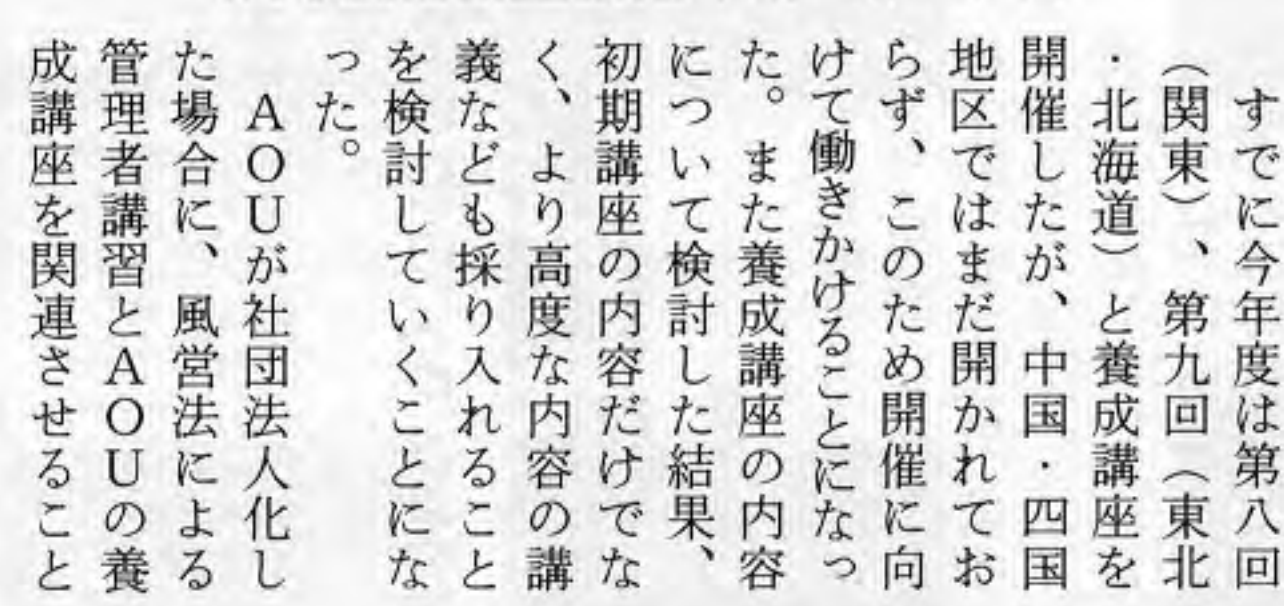 すでに今年度は第八回
（関東）、第九回（東北
・北海道）と養成講座を
開催したが、中国・四国
地区ではまだ開かれてお
らず、このため開催に向
けて働きかけることになっ
た。また養成講座の内容
について検討した結果、
初期講座の内容だけでな
く、より高度な内容の講
義なども採り入れること
を検討していくことにな
った。
ＡＯＵが社団法人化し
た場合に、風営法による
管理者講習とＡＯＵの養
成講座を関連させること